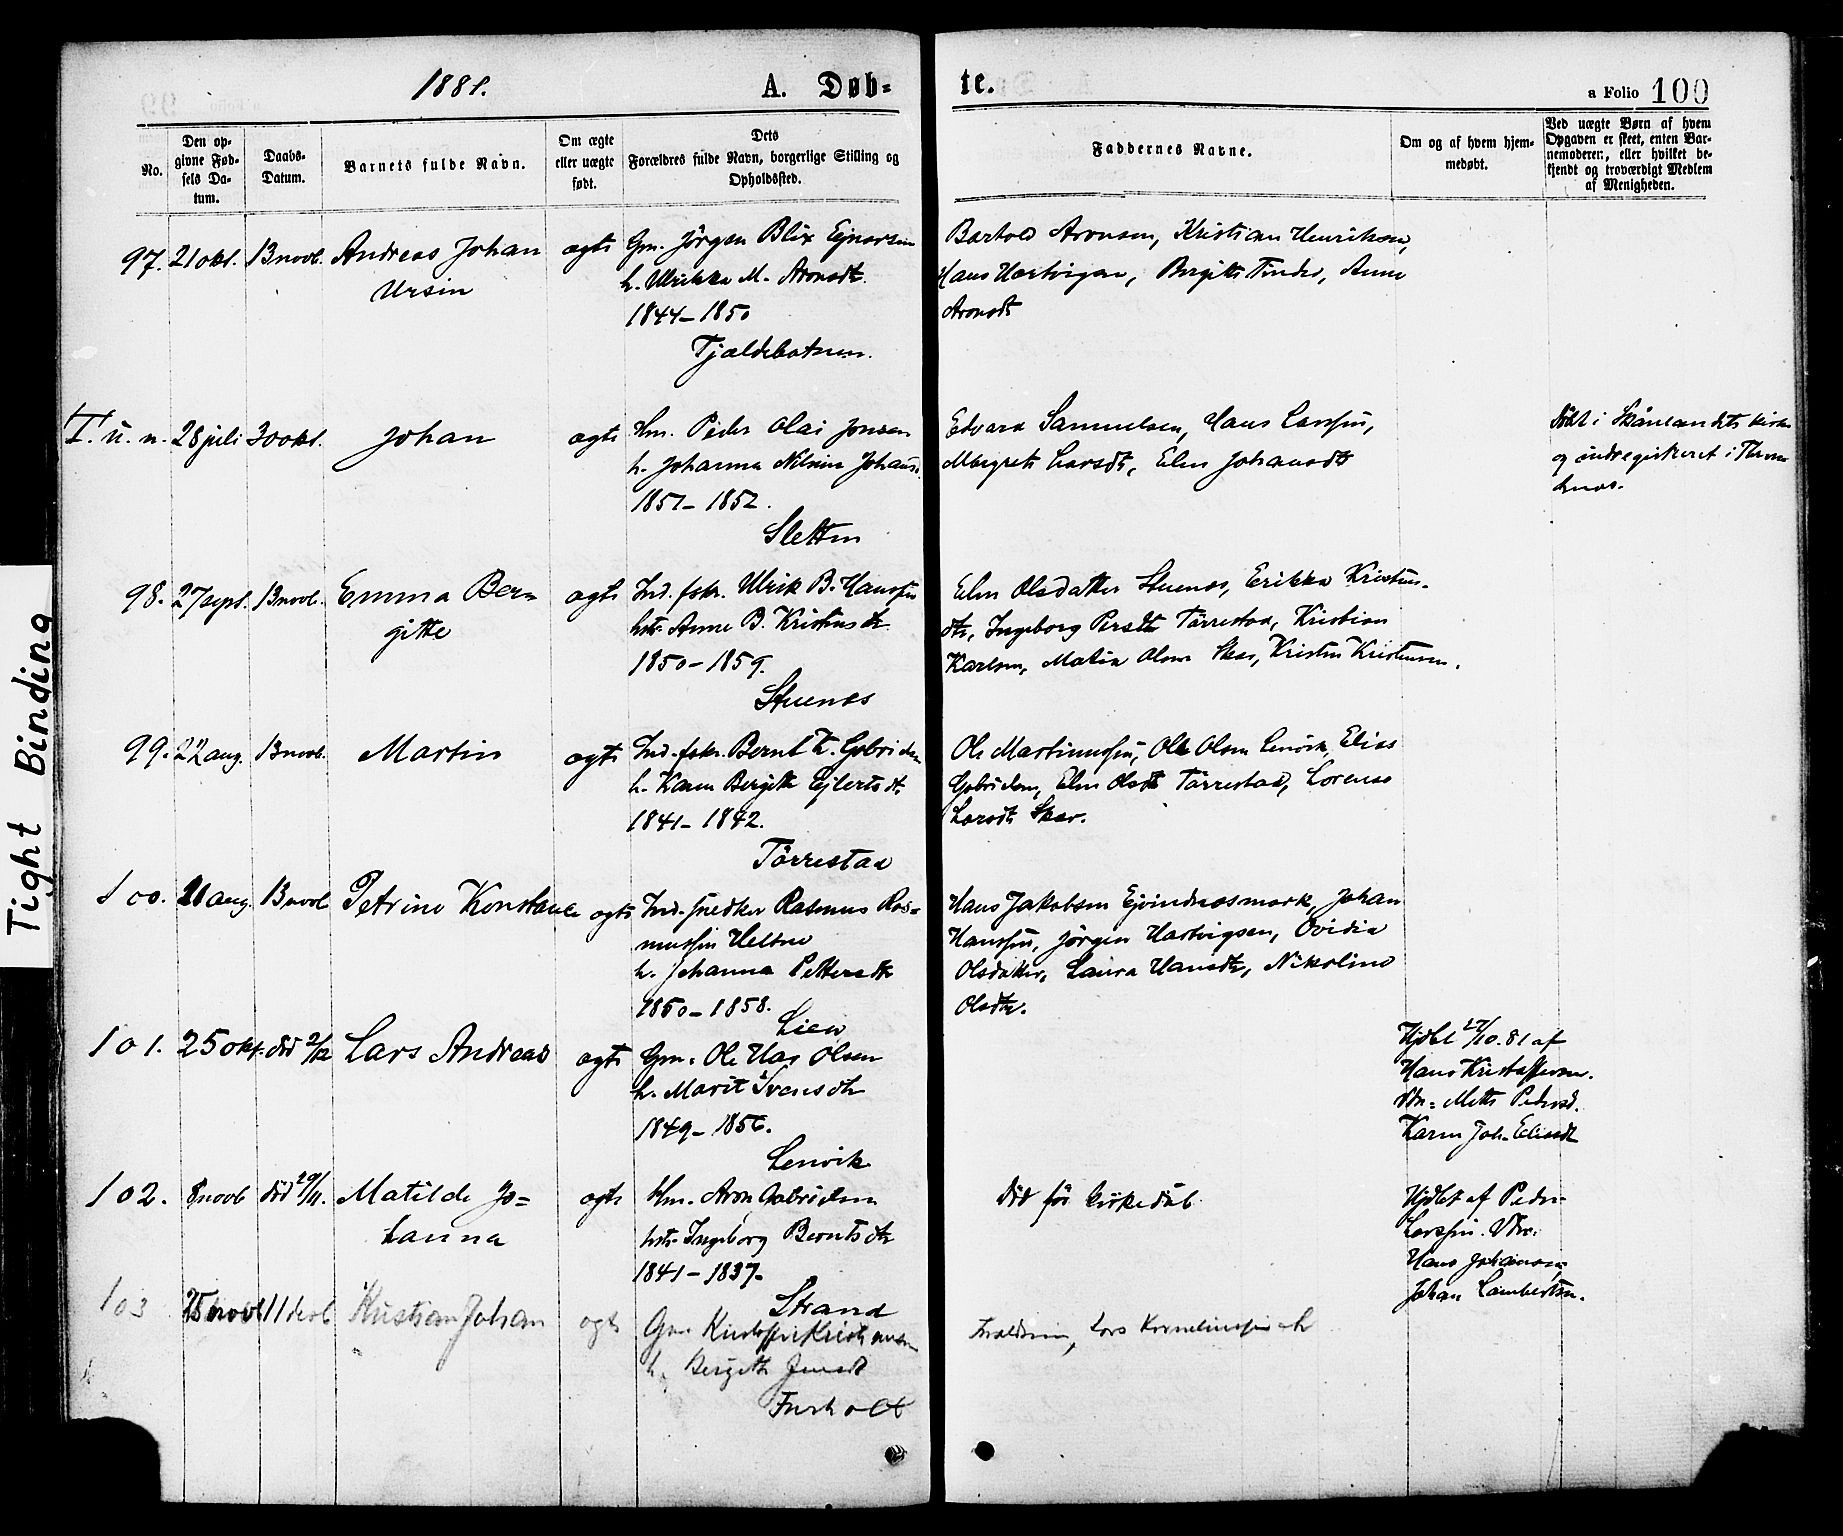 1881.
A. Døb=
te.
a Folio 100
No.
Den op-
givne Fød-
sels Da-
tum.
Daabs-
Datum.
Barnets fulde Navn.
Om ægte
eller uægte
født.
Dets
Forældres fulde Navn, borgerlige Stilling og
Opholdssted.
Faddernes Navne.
Om og af hvem hjem-
medøbt.
Ved uægte Børn af hvem
Opgaven er skeet, enten Bar-
nemoderen, eller hvilket be-
kjendt og troværdigt Medlem
af Menigheden.
97. 21 okt. 13 novb. Andreas Johan
Ursin
ægte
Gm. Jörgen Blix Ejnarsen
h. Ulrikka M. Aronsdt.
1844–1850
Tjældebotnen.
Bertold Aronsen, Kristian Henriksen,
Hans Hartvigsen, Bergitte
Aronsdt
T. u. n. 28 juli 30 okt. Johan
ægte
Hm. Peder Olai Jonsen
h. Johanna
1851–1852.
Sletten
Edvard Samuelsen, Hans Larssen,
Margrete Larsdt, Elen Johansdt
Døbt i Skånlandets kirke
og indregistreret i Thron-
denæs.
98. 27 sept. 13 novb. Emma Ber=
gitte
ægte
Ind. fskr. Ulrik B. Hanssen
hstr Anne B. Kristensdtr.
1850–1859.
Stuenes
Elen Olsdatter Stuenes, Erikka Kristens-
dtr, Ingeborg Persdtr Tårrestad, Kristian
Karlsen, Matia Olsen Skar, Kristen Kristensen.
99. 22 aug. 13 novb. Martin
ægte
Ind. fskr. Bernt
h. Karen Bergitte Ejlertsdt.
1841–1842.
Tårrestad
Ole Martinussen, Ole Olsen Lenvik, Elias
Gabrielsen, Elen Olsdt Tårrestad, Lorense
Larsdt Skar.
100. 21 aug. 13 novb Petrine Konstance
ægte
Ind. snedker Rasmus Ras=
mussen
h. Johanna Pettersdtr
1850–1858.
Lien
Hans Jakobsen Ejvindnæsmark, Johan
Hanssen, Jørgen Hartvigsen, Ovidia
Olsdatter, Laura Hansdtr, Nikoline
Olsdtr.
101. 25 okt. död 2/12 Lars Andreas
ægte
Gm. Ole Olsen
h. Marit Svensdtr
1849–1856.
Lenvik
Hjdbt 27/10.81 af
Hans Kristoffersen.
Vdn. Mette Pedersd.
Karen Joh.
102. 8 novb död 29/11. Matilde Jo=
hanna
ægte
Hm. Aron Gabrielsen
hstr Ingeborg Berntsdtr
1841–1837.
Strand
Död för kirkedåb
Hjdbt af Peder
Larssen. Vdn.
Hans Johansen
Johan Lambertsen.
103 25 novb 11 decb Kristian Johan
ægte
Gm Kristoffer Kristiansen
h. Bergitte Jensdt
Fuskolt
Forældrene, Lars Kornelinssen
Tight Binding